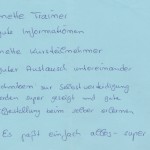 nette Trainer
gute Informationen
nette Kursteilnehmer
gutes Austausch untereinander
zur Selbstverteidigung
super gezeigt und gute
beim selber erlernen
Es paßt einfach alles - super